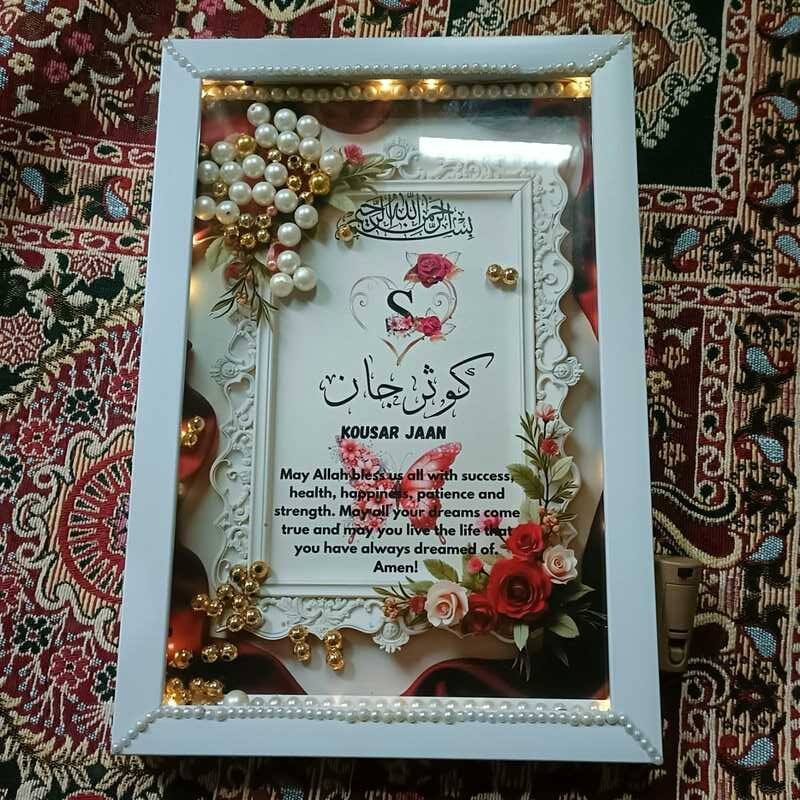 بسم الله الرحمن الرحيم
S
كوثر جان
KOUSAR JAAN
May Allah bless us all with success,
health, happiness, patience and
strength. May all your dreams come
true and may you live the life that
you have always dreamed of.
Amen!